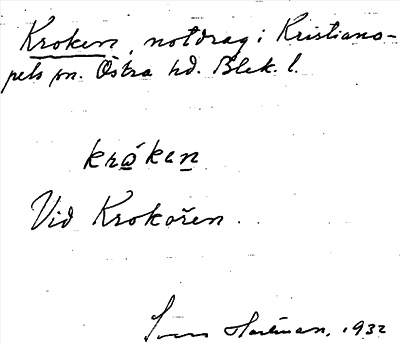 Kroken, notdrag i Kristiano-
pels sn. Östra hd. Blek. l.
kråken
Vid Krokören.
Sven Hartman, 1932